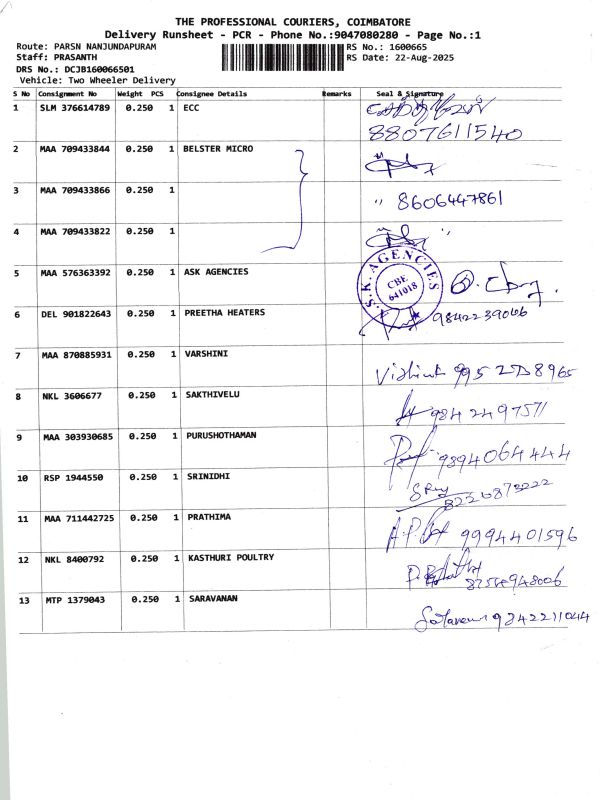 THE PROFESSIONAL COURIERS, COIMBATORE
Delivery Runsheet - PCR - Phone No.:9047080280 - Page No.:1
Route: PARSN NANJUNDAPURAM RS No.: 1600665
Staff: PRASANTH RS Date: 22-Aug-2025
DRS No.: DCJB160066501
Vehicle: Two Wheeler Delivery
S No Consignment No Weight PCS Consignee Details Remarks Seal & Signature
1 SLM 376614789 0.250 1 ECC
8807611540
2 MAA 709433844 0.250 1 BELSTER MICRO
3 MAA 709433866 0.250 1
" 8606447861
4 MAA 709433822 0.250 1
"
5 MAA 576363392 0.250 1 ASK AGENCIES
S.K. AGENCIES
CBE
641018
6 DEL 901822643 0.250 1 PREETHA HEATERS
9842239066
7 MAA 870885931 0.250 1 VARSHINI
8 NKL 3606677 0.250 1 SAKTHIVELU
9842497571
9 MAA 303930685 0.250 1 PURUSHOTHAMAN
9894064444
10 RSP 1944550 0.250 1 SRINIDHI
11 MAA 711442725 0.250 1 PRATHIMA
9994401596
12 NKL 8400792 0.250 1 KASTHURI POULTRY
13 MTP 1379043 0.250 1 SARAVANAN
9842211044